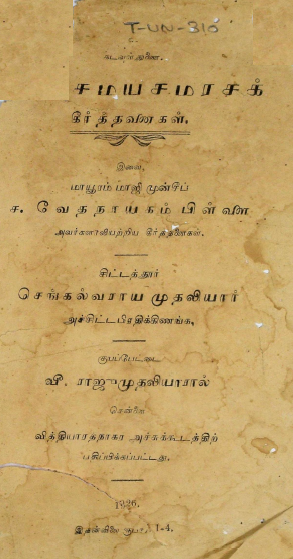 T-UN-310
கடவுள் துணை.
சமயசமரசக்
கீர்த்தனைகள்.
இவை,
மாயூரம் மாஜி முன்சீப்
ச. வேதநாயகம் பிள்ளை
அவர்களாலியற்றிய கீர்த்தனைகள்.
சிட்டத்தூர்
செங்கல்வராய முதலியார்
அச்சிட்டபிரதிக்கிணங்க,
வீ. ராஜுமுதலியாரால்
சென்னை
வித்தியாரத்நாகர அச்சுக்கூடத்திற்
பதிப்பிக்கப்பட்டது.
இதன்விலை ரூபா, 1-4.